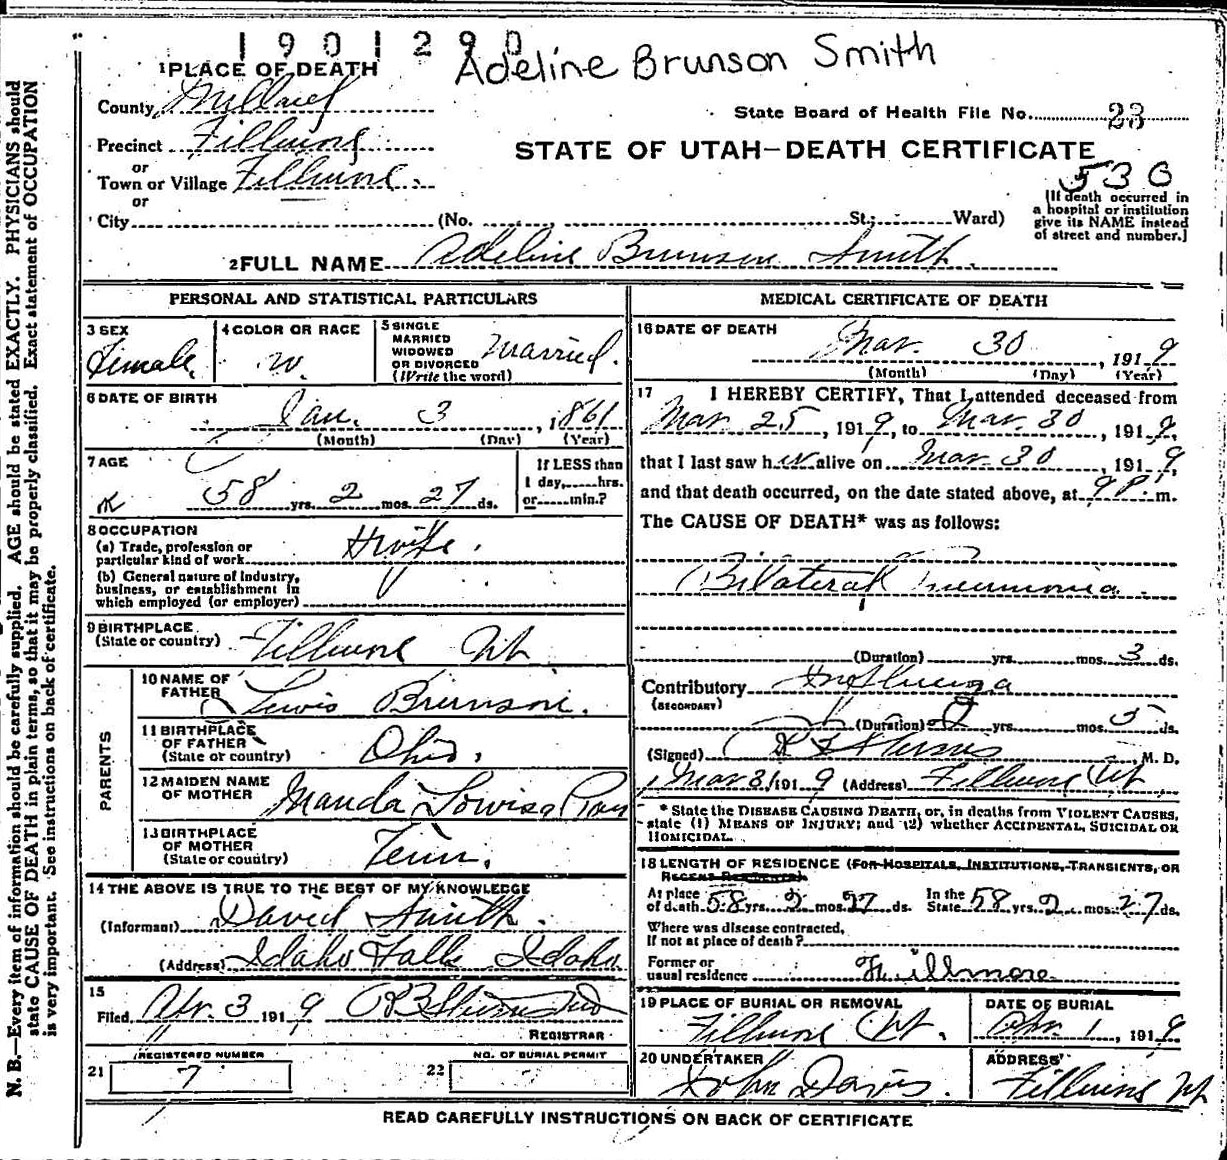 1901290
Adeline Brunson Smith
1 PLACE OF DEATH
County Millard
State Board of Health File No. 23
Precinct Fillmore
STATE OF UTAH—DEATH CERTIFICATE
or
Town or Village Fillmore.
530
or
City (No. St.; Ward)
[If death occurred in a hospital or institution give its NAME instead of street and number.]
2 FULL NAME Adeline Brunson Smith.
PERSONAL AND STATISTICAL PARTICULARS
3 SEX Female
4 COLOR OR RACE W.
5 SINGLE MARRIED WIDOWED OR DIVORCED (Write the word) Married.
6 DATE OF BIRTH Jan. 3, 1861
(Month) (Day) (Year)
7 AGE 58 yrs. 2 mos. 27 ds.
If LESS than 1 day, hrs. or min.?
8 OCCUPATION
(a) Trade, profession or particular kind of work Hwife.
(b) General nature of Industry, business, or establishment in which employed (or employer)
9 BIRTHPLACE (State or country) Fillmore Ut.
PARENTS
10 NAME OF FATHER Lewis Brunson.
11 BIRTHPLACE OF FATHER (State or country) Ohio.
12 MAIDEN NAME OF MOTHER Manda Lowisa
13 BIRTHPLACE OF MOTHER (State or country) Tenn.
14 THE ABOVE IS TRUE TO THE BEST OF MY KNOWLEDGE
(Informant) David Smith.
(Address) Idaho Falls Idaho
15
Filed Apr. 3 1919
REGISTRAR
REGISTERED NUMBER
21 7
NO. OF BURIAL PERMIT
22
MEDICAL CERTIFICATE OF DEATH
16 DATE OF DEATH
Mar. 30, 1919
(Month) (Day) (Year)
17 I HEREBY CERTIFY, That I attended deceased from
Mar. 25, 1919, to Mar. 30, 1919,
that I last saw her alive on Mar. 30, 1919,
and that death occurred, on the date stated above, at 9 P. m.
The CAUSE OF DEATH* was as follows:
Bilateral Pneumonia.
(Duration) yrs. mos. 3 ds.
Contributory Influenza
(SECONDARY)
(Duration) yrs. mos. 5 ds.
(Signed) M. D.
Mar 31 1919 (Address) Fillmore Ut
* State the DISEASE CAUSING DEATH, or, in deaths from VIOLENT CAUSES, state (1) MEANS OF INJURY; and (2) whether ACCIDENTAL, SUICIDAL OR HOMICIDAL.
18 LENGTH OF RESIDENCE (FOR HOSPITALS, INSTITUTIONS, TRANSIENTS, OR RECENT RESIDENTS)
At place of death 58 yrs. 2 mos. 27 ds. In the State 58 yrs. 2 mos. 27 ds.
Where was disease contracted, If not at place of death?
Former or usual residence Fillmore
19 PLACE OF BURIAL OR REMOVAL
Fillmore Ut.
DATE OF BURIAL
Apr. 1, 1919
20 UNDERTAKER
John Davis.
ADDRESS
Fillmore Ut
READ CAREFULLY INSTRUCTIONS ON BACK OF CERTIFICATE
N. B.—Every item of information should be carefully supplied. AGE should be stated EXACTLY. PHYSICIANS should
state CAUSE OF DEATH in plain terms, so that it may be properly classified. Exact statement of OCCUPATION
is very important. See instructions on back of certificate.